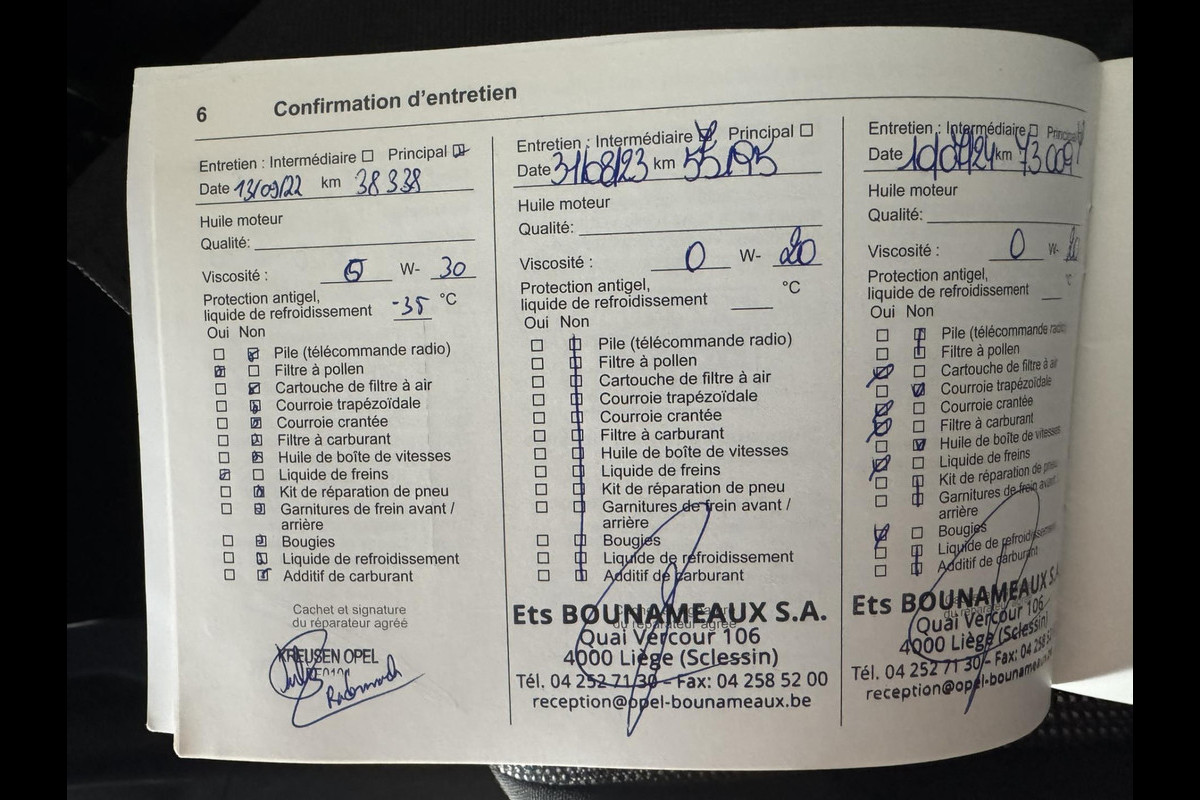 6 Confirmation d'entretien
Entretien : Intermédiaire Principal
Date 13/09/22 km 38338
Huile moteur
Qualité:
Viscosité : 5 W- 30
Protection antigel,
liquide de refroidissement -35 °C
Oui Non
Pile (télécommande radio)
Filtre à pollen
Cartouche de filtre à air
Courroie trapézoïdale
Courroie crantée
Filtre à carburant
Huile de boîte de vitesses
Liquide de freins
Kit de réparation de pneu
Garnitures de frein avant /
arrière
Bougies
Liquide de refroidissement
Additif de carburant
Cachet et signature
du réparateur agréé
KREUSEN OPEL
Entretien : Intermédiaire Principal
Date 31/08/23 km 55195
Huile moteur
Qualité:
Viscosité : 0 W- 20
Protection antigel,
liquide de refroidissement °C
Oui Non
Pile (télécommande radio)
Filtre à pollen
Cartouche de filtre à air
Courroie trapézoïdale
Courroie crantée
Filtre à carburant
Huile de boîte de vitesses
Liquide de freins
Kit de réparation de pneu
Garnitures de frein avant /
arrière
Bougies
Liquide de refroidissement
Additif de carburant
Cachet et signature
du réparateur agréé
Ets BOUNAMEAUX S.A.
Quai Vercour 106
4000 Liège (Sclessin)
Tél. 04 252 71 30 - Fax: 04 258 52 00
reception@opel-bounameaux.be
Entretien : Intermédiaire Principal
Date km 73009
Huile moteur
Qualité:
Viscosité : 0 W- 20
Protection antigel,
liquide de refroidissement °C
Oui Non
Pile (télécommande radio)
Filtre à pollen
Cartouche de filtre à air
Courroie trapézoïdale
Courroie crantée
Filtre à carburant
Huile de boîte de vitesses
Liquide de freins
Kit de réparation de pneu
Garnitures de frein avant
arrière
Bougies
Liquide de refroidissement
Additif de carburant
Ets BOUNAMEAUX S.A.
Quai Vercour 106
4000 Liège (Sclessin)
Tél. 04 252 71 30 - Fax: 04 258 52
reception@opel-bounameaux